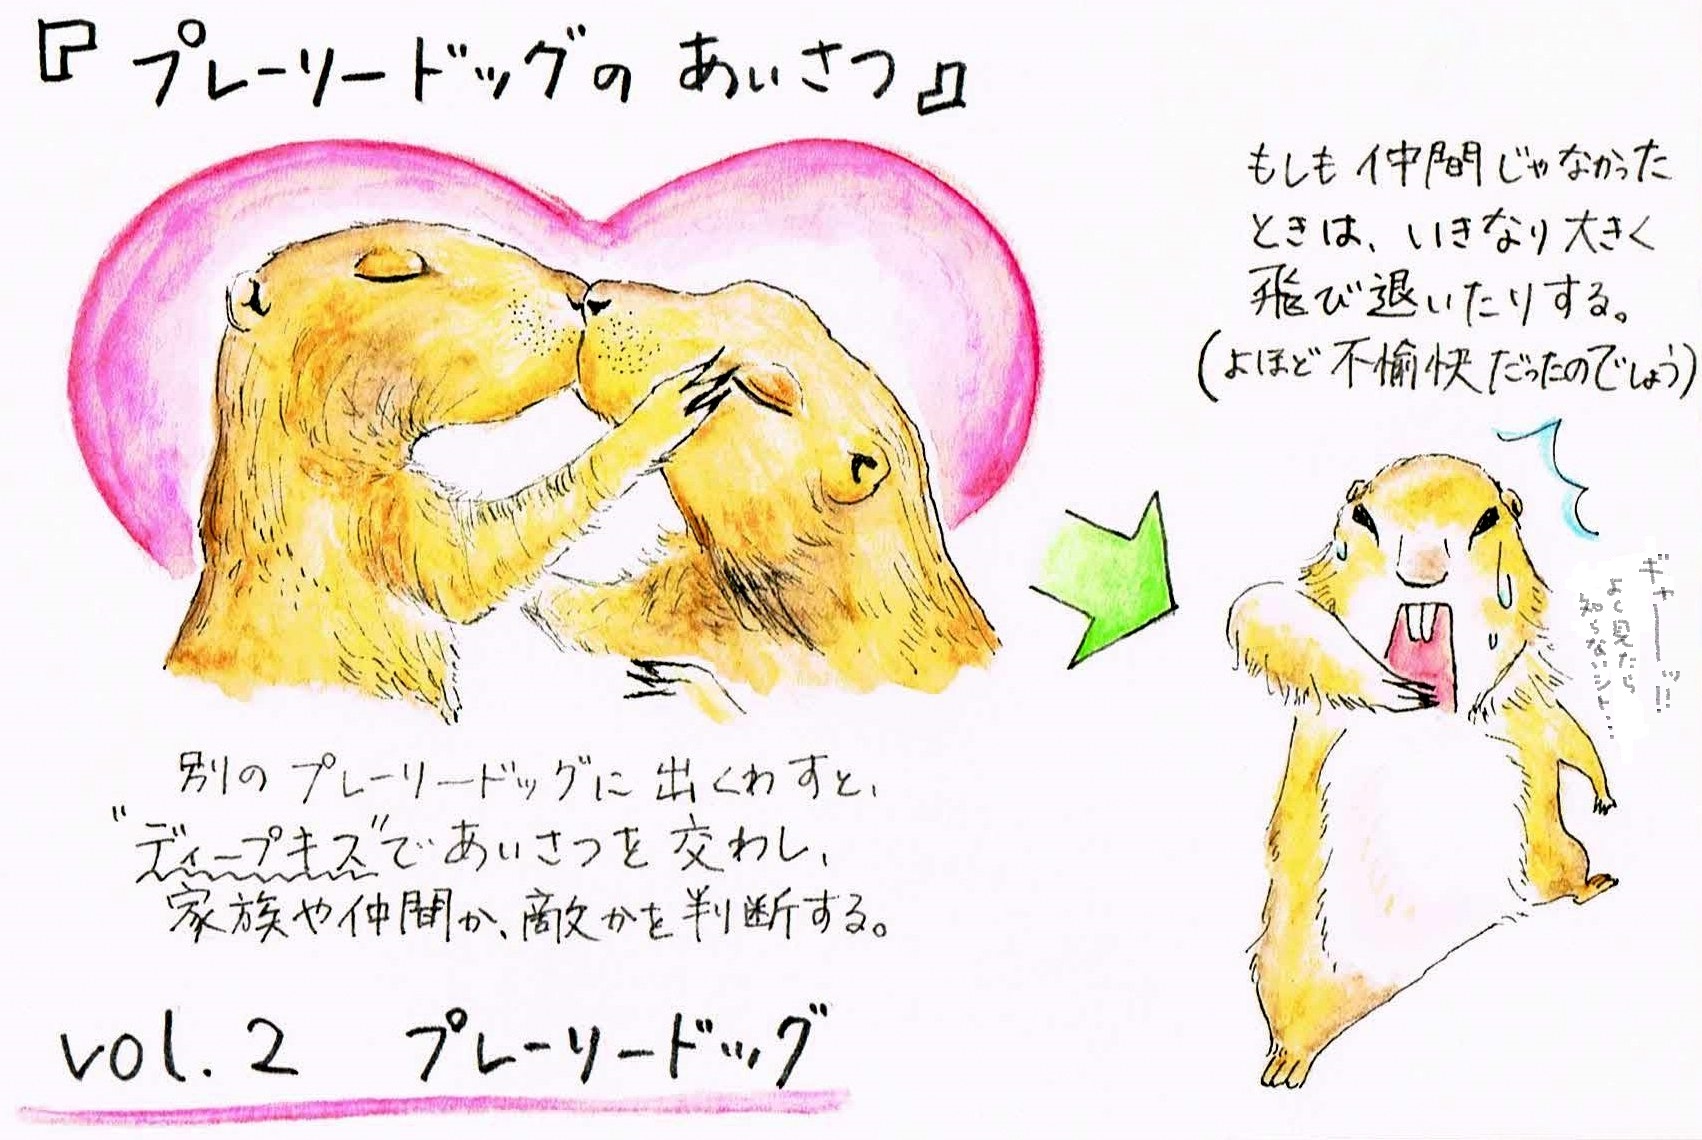 『プレーリードッグの あいさつ』
もしも仲間じゃなかった
ときは、いきなり大きく
飛び退いたりする。
(よほど不愉快だったのでしょう)
ギャーーッ!!
よく見たら
知らないシト…
別のプレーリードッグに出くわすと、
"ディープキス"であいさつを交わし、
家族や仲間か、敵かを判断する。
vol.2 プレーリードッグ